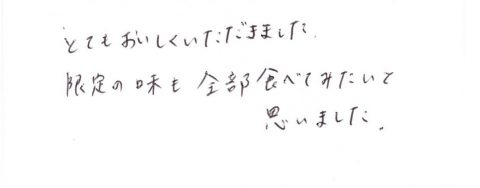 とてもおいしくいただきました.
限定の味も全部食べてみたいと
思いました.